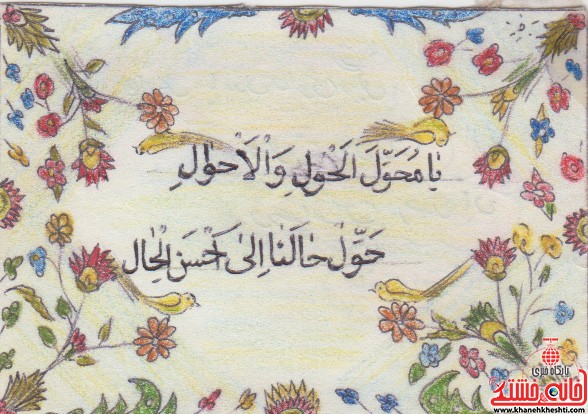 يا مُحَوِّلَ الْحَولِ وَالْاَحْوالِ
حَوِّلْ حالَنا اِلىٰ اَحْسَنِ الْحال
پایگاه خبری
خانه خشتی
www.khanehkheshti.com